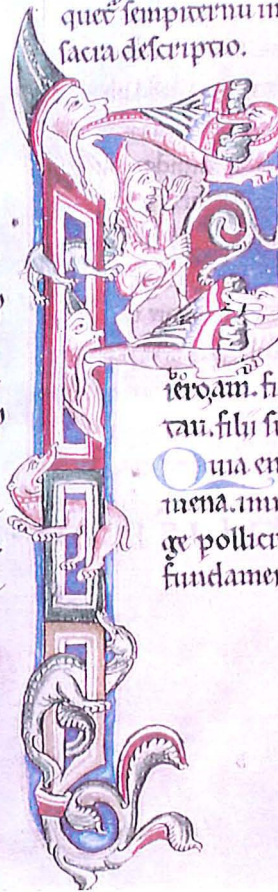 quet sempiternu in
sacra descriptio.
ieroam. fi
tau. filii
Quia en
mena.
ge pollicit
fundamen